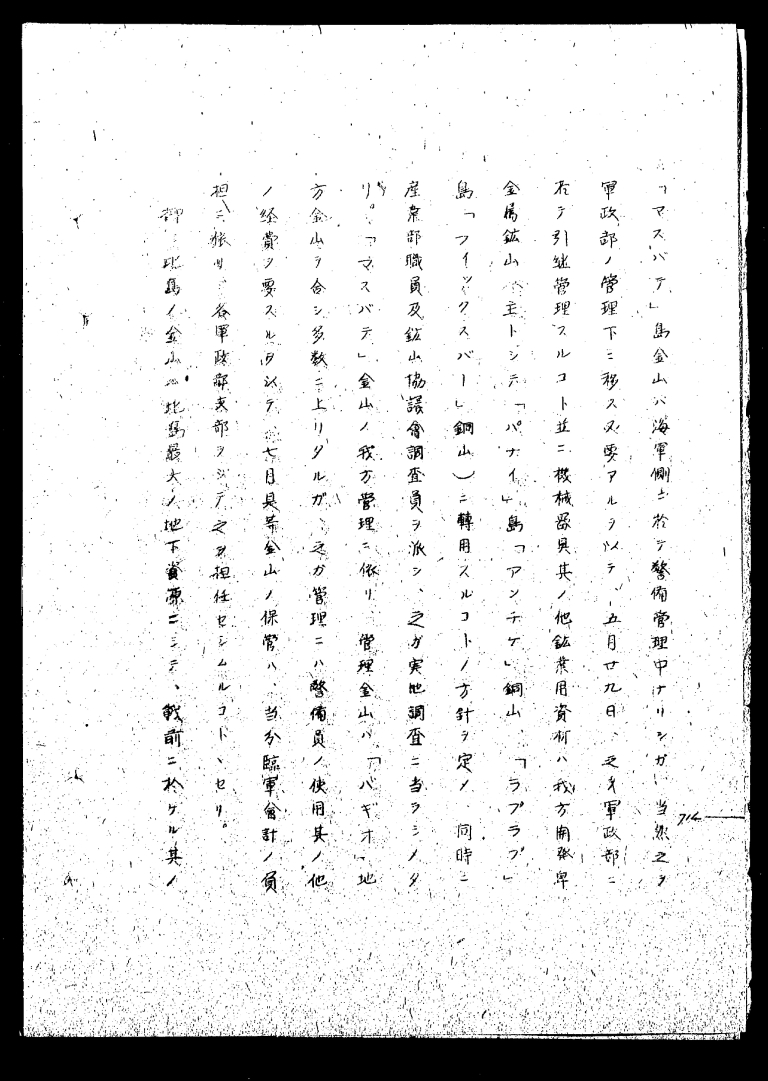 「マスバテ」島金山ハ海軍側ニ於テ警備管理中ナリシガ、当然之ヲ
軍政部ノ管理下ニ移ス必要アルヲ以テ、五月廿九日、之ヲ軍政部ニ
於テ引継管理スルコト並ニ機械器具其ノ他鉱業用資材ハ我方開発卑
金属鉱山(主トシテ「パナイ」島「アンチケ」銅山、「ラプラプ」
島「フイックスバー」銅山)ニ轉用スルコトノ方針ヲ定メ、同時ニ
産業部職員及鉱山協議會調査員ヲ派シ、之ガ実地調査ニ当ラシメタ
リ。「マスバテ」金山ノ我方管理ニ依リ、管理金山ハ「バギオ」地
方金山ヲ合シ多数ニ上リタルガ、之ガ管理ニハ警備員ノ使用其ノ他
ノ経費ヲ要スル タシテ、七月具等金山ノ保管ハ、当分臨軍會計ノ負
担ニ依リ、各軍政部支部ヲシテ之ヲ担任セシムルコトヽセリ。
抑々比島ノ金山ハ比島最大ノ地下資源ニシテ、戦前ニ於ケル其ノ
714